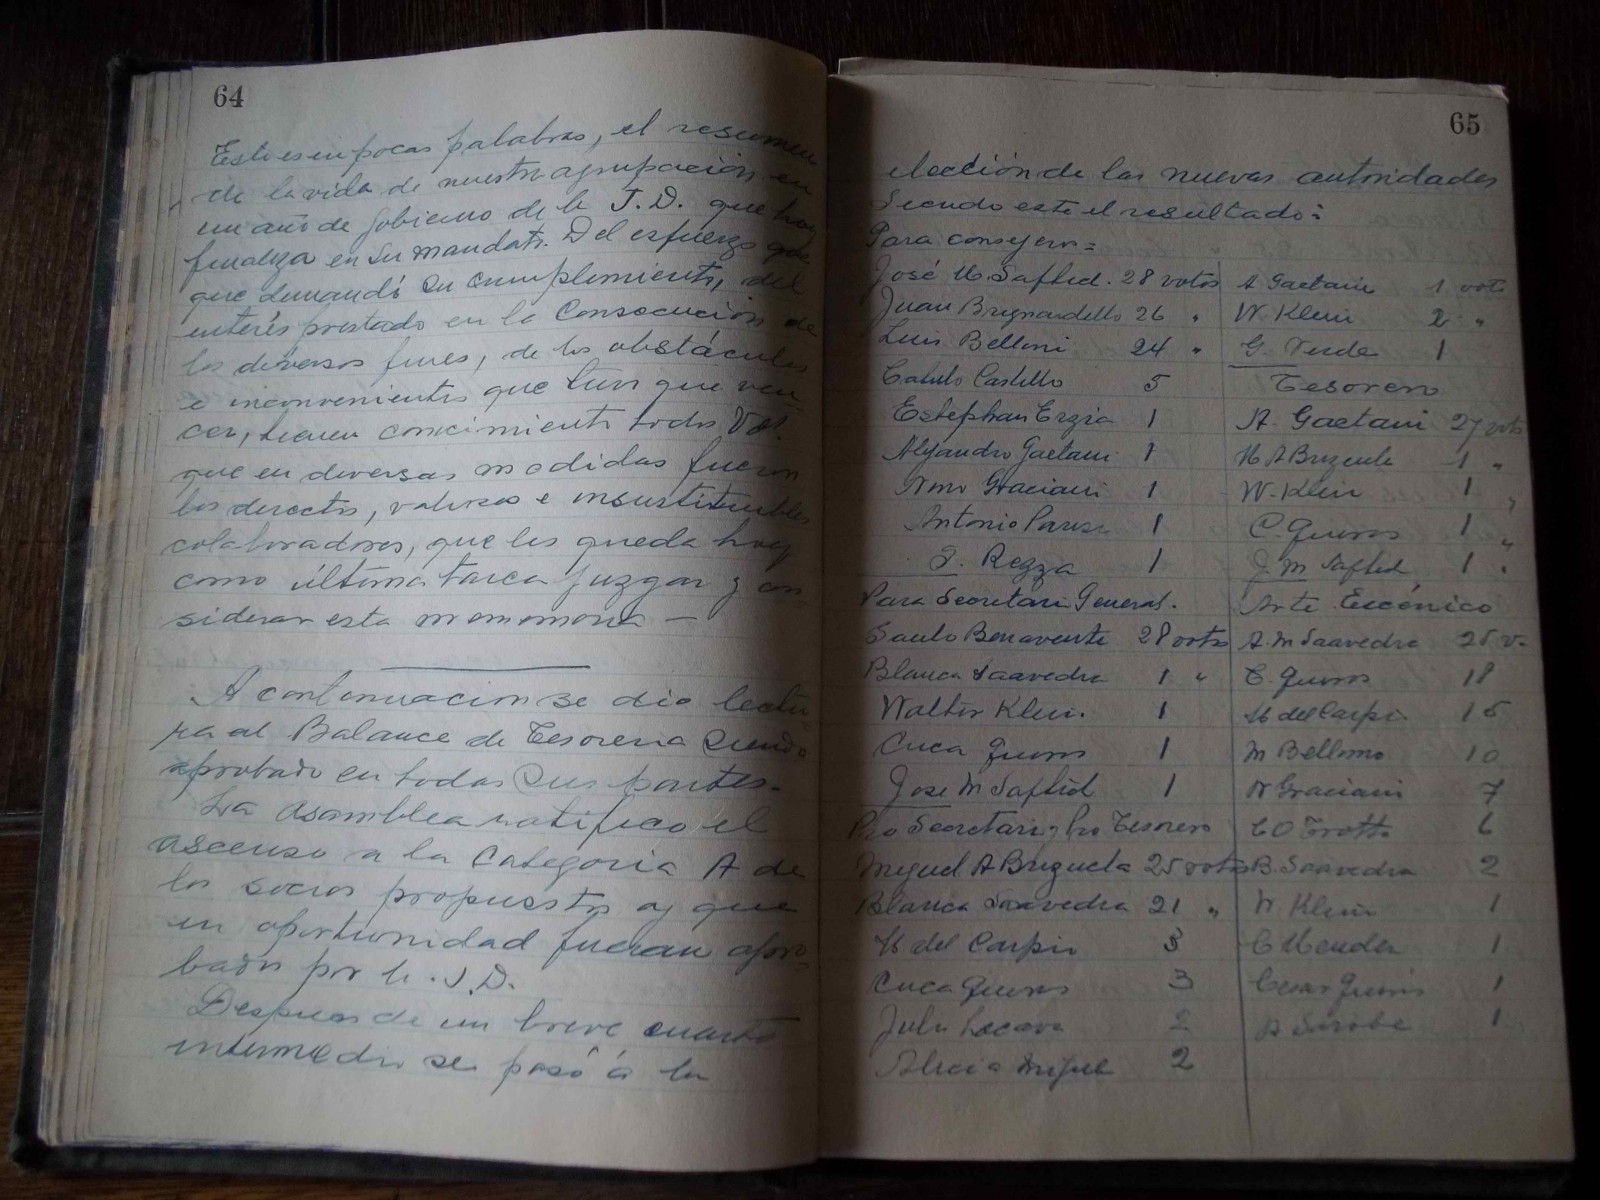 64
Esto es en pocas palabras, el resumen
de la vida de nuestra agrupación en
un año de gobierno de la J.D. que hoy
finaliza en su mandato. Del esfuerzo que
que demandó su cumplimiento, del
interés prestado en la consecución de
los diversos fines, de los obstáculos
e inconvenientes que tuvo que ven-
cer, tienen conocimiento todos Vds.
que en diversas medidas fueron
los directos, valiosos e insustituibles
colaboradores, que les queda hoy
como última tarea juzgar y con-
siderar esta
A continuacion se dio lectu-
ra al Balance de Tesoreria siendo
aprobado en todas sus partes.
La asamblea ratifico el
ascenso a la Categoria A de
los socios propuestos y que
en oportunidad fueran apro-
bados por la J.D.
Despues de un breve cuarto
intermedio se pasó á la
65
elección de las nuevas autoridades
Siendo este el resultado:
Para consejero =
José M. Saftid. 28 votos
Juan Brignardello 26 "
Luis Belloni 24 "
Catulo Castillo 5
Estephan Erzia 1
Alejandro Gaetani 1
Graciani 1
Antonio 1
Rezza 1
Para Secretario General.
Saulo Benavente 28 votos
Blanca Saavedra 1 "
Walter Klein. 1
Cuca Queiros 1
Jose M Saftid 1
Pro Secretario y Pro Tesorero
Miguel A Brizuela 25 votos
Blanca Saavedra 21 "
M del Carpio 3
Cuca Queiros 3
Julio Lacava 2
Alicia Miguel 2
A Gaetani 1 voto
W. Klein 2 "
G. 1
Tesorero
A. Gaetani 27 vots
M A Brizuela 1 "
W. Klein 1 "
C. Queiros 1 "
J. M Saftid 1 "
Arte Escénico
A. M Saavedra 25 v.
C. Queiros 18
M del Carpio 15
M Bellomo 10
N Graciani 7
C O Trotto 6
B. Saavedra 2
W. Klein 1
C Mendez 1
Cesar Queiros 1
A 1